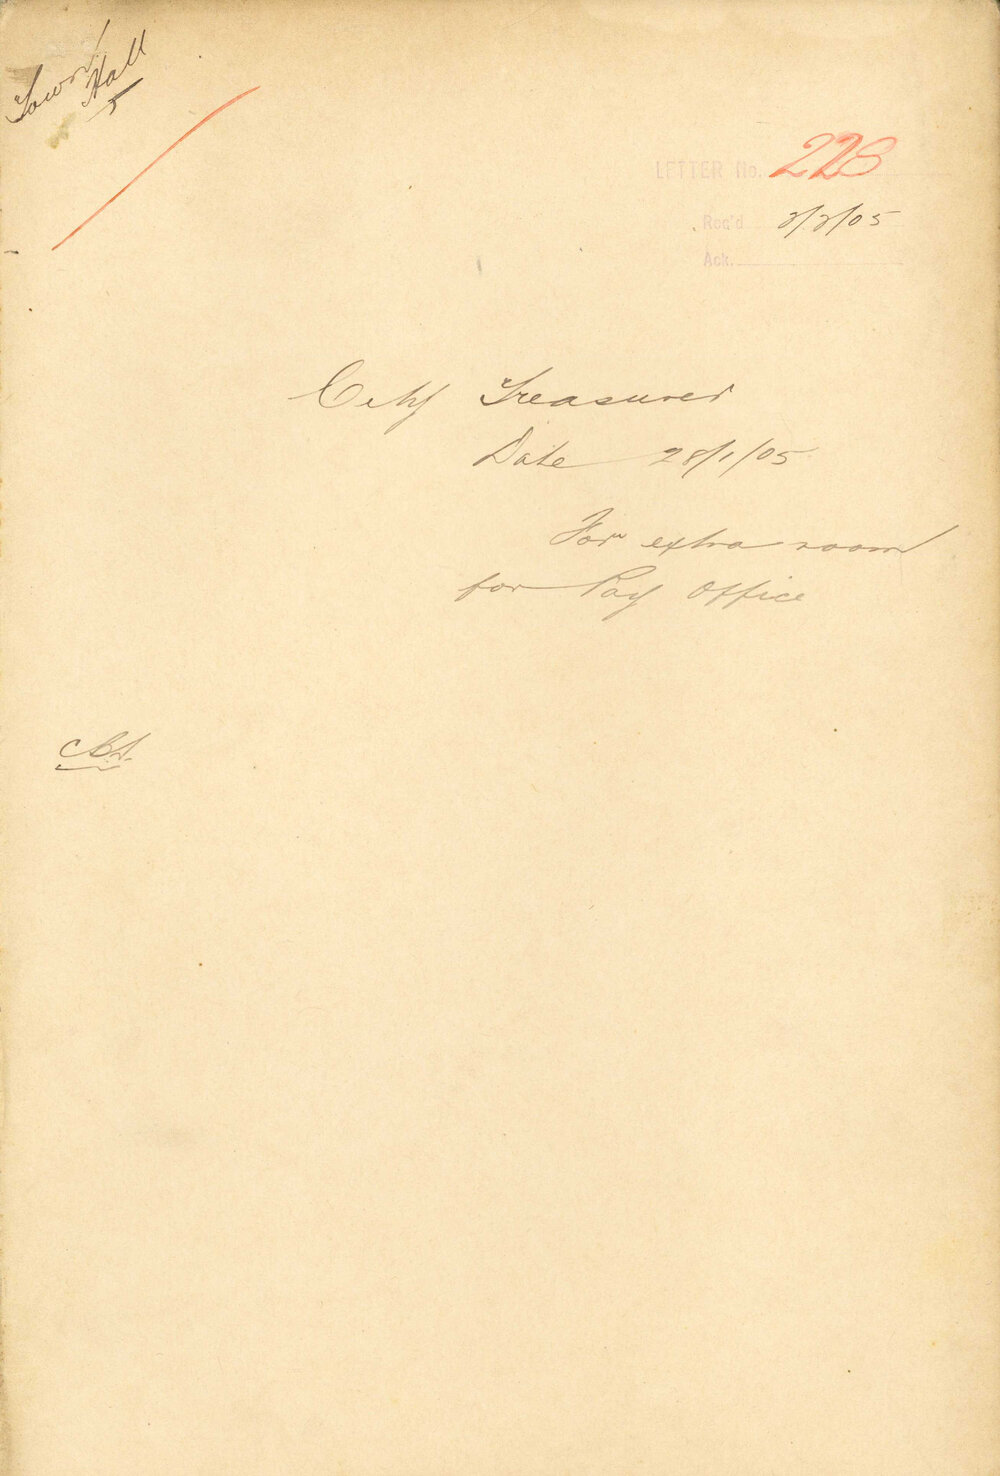 Town
Hall
5
LETTER No. 223
Rec'd 2/2/05
Ack.
City Treasurer
Date 28/1/05
For extra room
for Pay Office